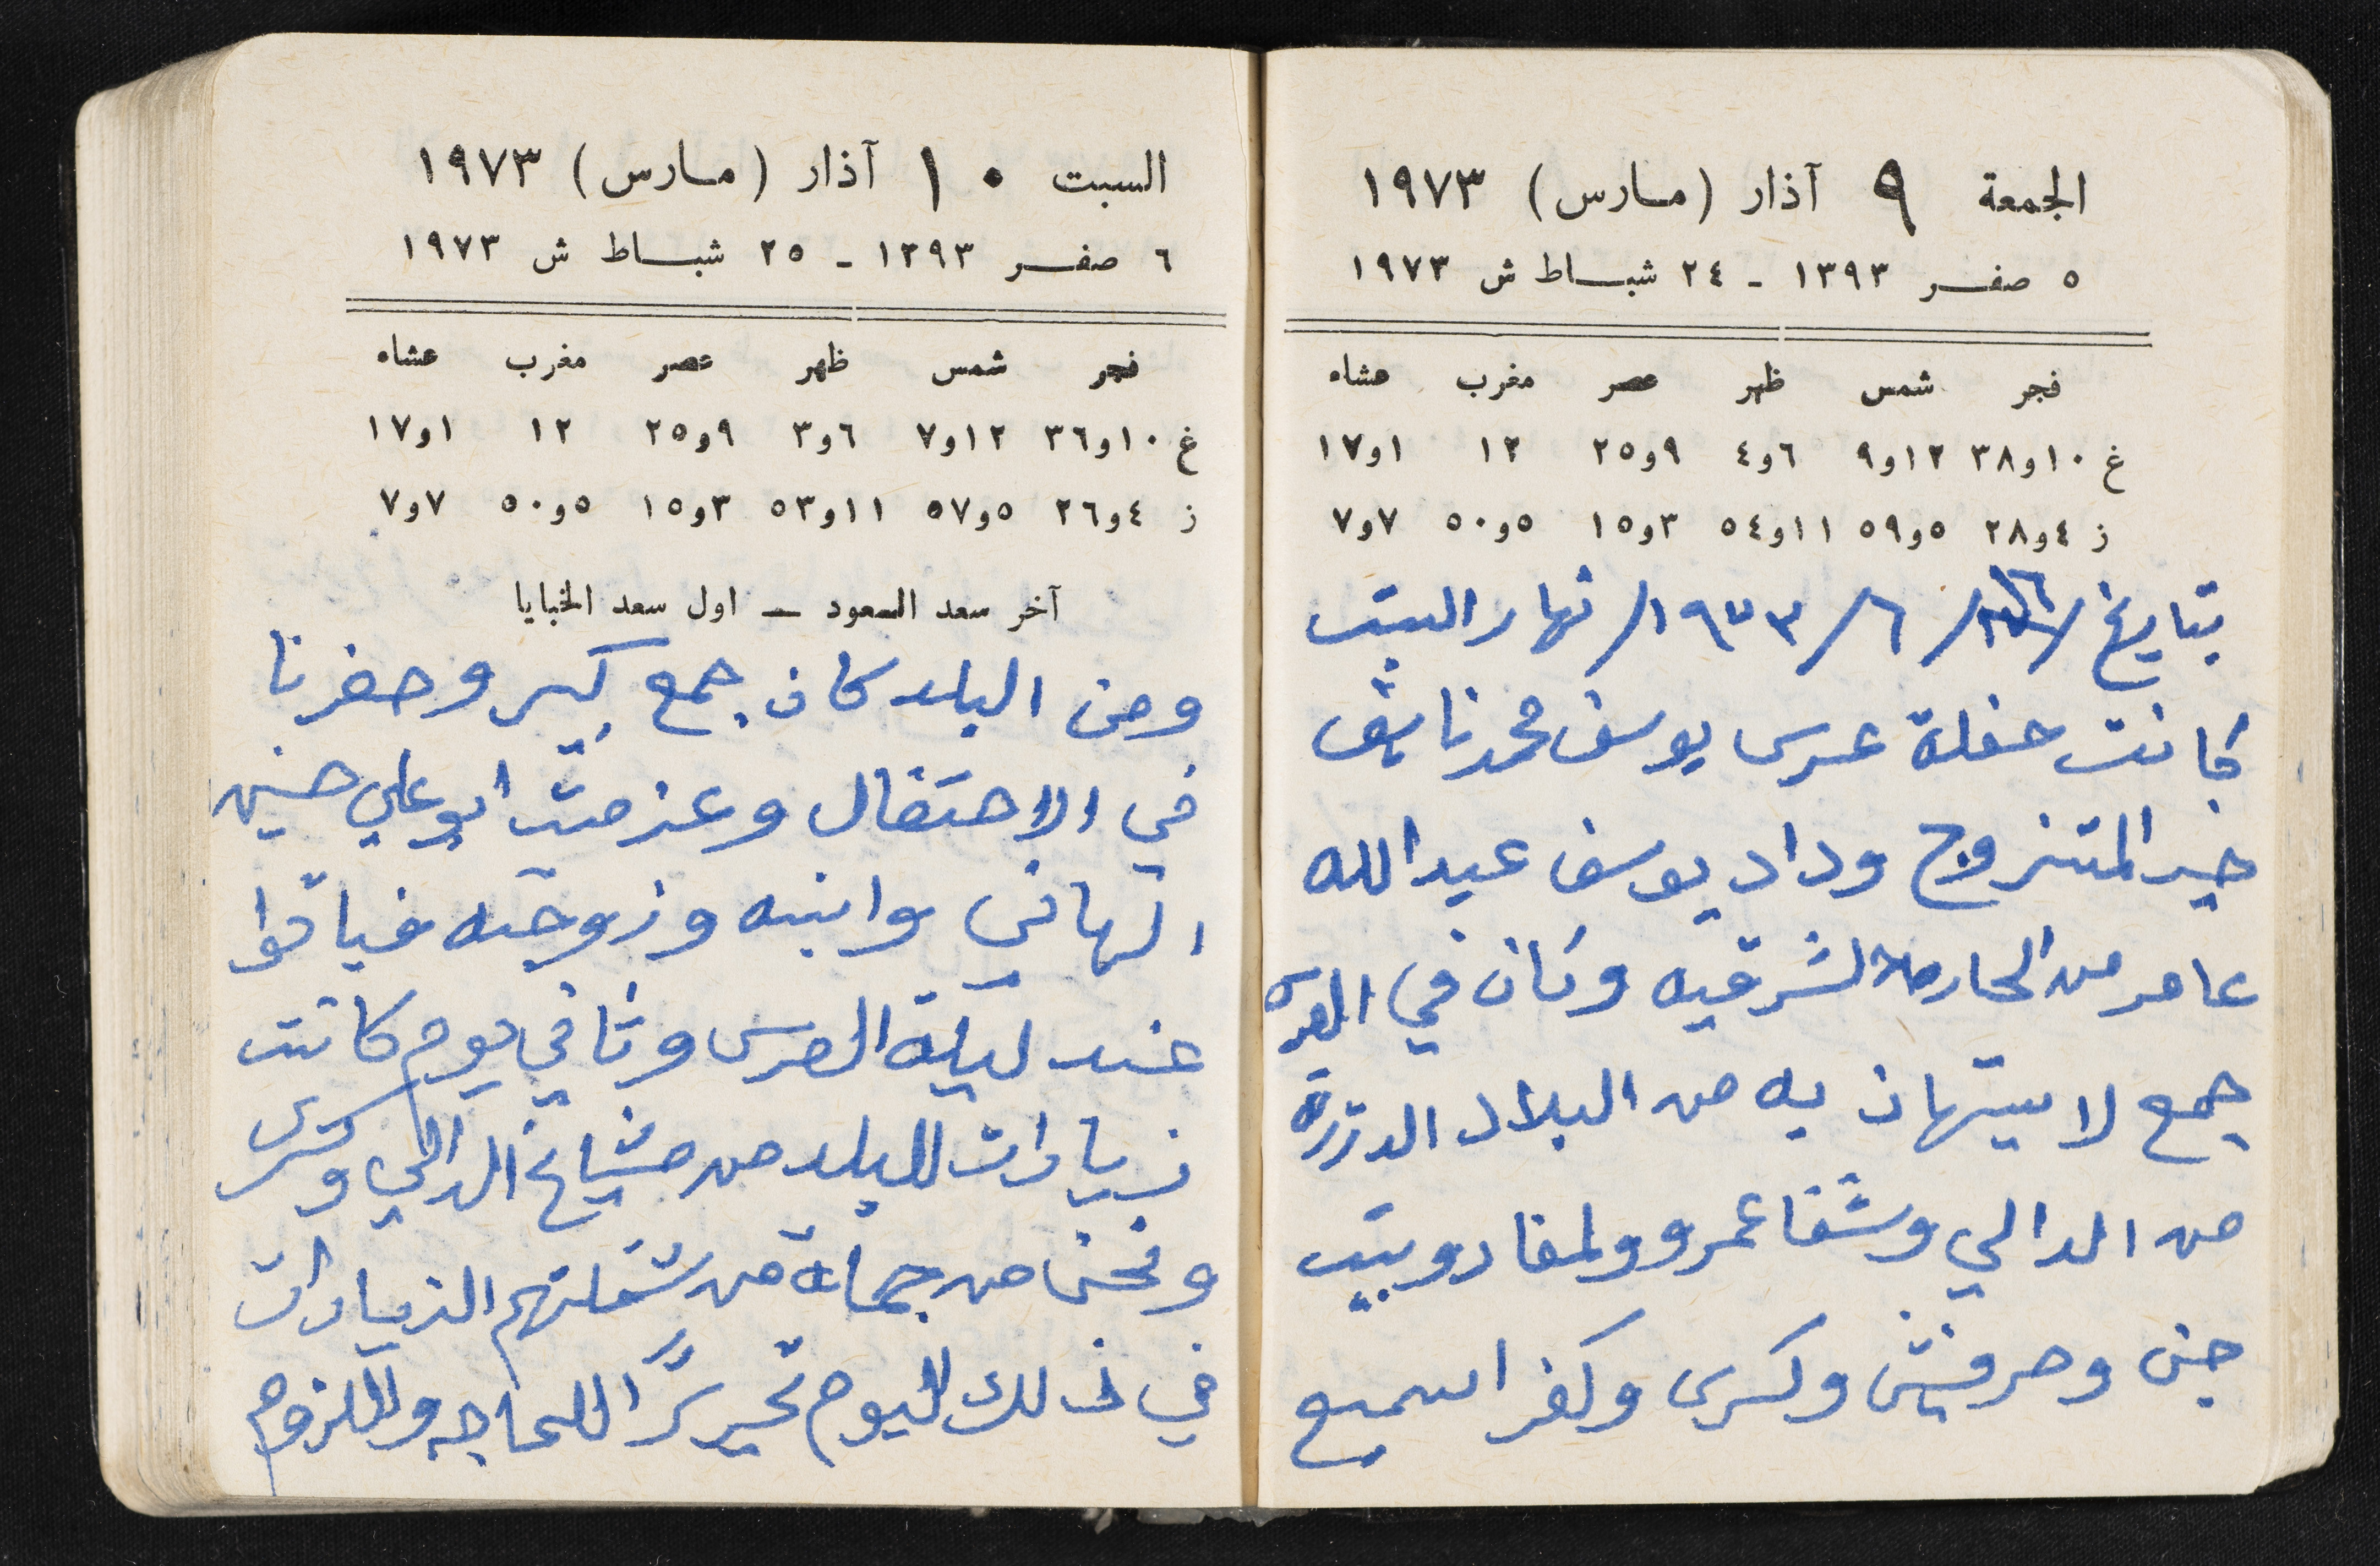 الجمعة ٩ آذار (مارس) ١٩٧٣
٥ صفر ١٣٩٣ - ٢٤ شباط ش ١٩٧٣
فجر شمس ظهر عصر مغرب عشاء
غ ١٠و٣٨ ١٢و٩ ٦و٤ ٩و٢٥ ١٢ ١و١٧
ز ٤و٢٨ ٥و٥٩ ١١و٥٤ ٣و١٥ ٥و٥٠ ٧و٧
بتاريخ /١٦/ ٦/ ١٩٧٣/ نهار السبت
كانت حفلة عرس يوسف محمد ناشف
خير المتزوج وداد يوسف عبدالله
عامر من الحاره الشرقيه وكان في العرس
جمع لا يستهان به من البلاد الدرزية
من الدالي وشفاعمرو والمغار وبيت
جن وحرفيش وكسرى وكفر اسميع
السبت ١٠ آذار (مارس) ١٩٧٣
٦ صفر ١٣٩٣ - ٢٥ شباط ش ١٩٧٣
فجر شمس ظهر عصر مغرب عشاء
غ ١٠و٣٦ ١٢و٧ ٦و٣ ٩و٢٥ ١٢ ١و١٧
ز ٤و٢٦ ٥و٥٧ ١١و٥٣ ٣و١٥ ٥و٥٠ ٧و٧
آخر سعد السعود — اول سعد الخبايا
ومن البلد كان جمع كبير وحضرنا
في الاحتفال وعزمت ابو علي حسين
الهاني وابنه وزوجته فباتوا
عند ليلة العرس وثاني يوم كانت
زيارات للبلد من مشايخ الدالي وكسرى
ونحن من جماعة من شملتهم الزيارات
في ذلك اليوم تحريرًا للحاجه واللزوم